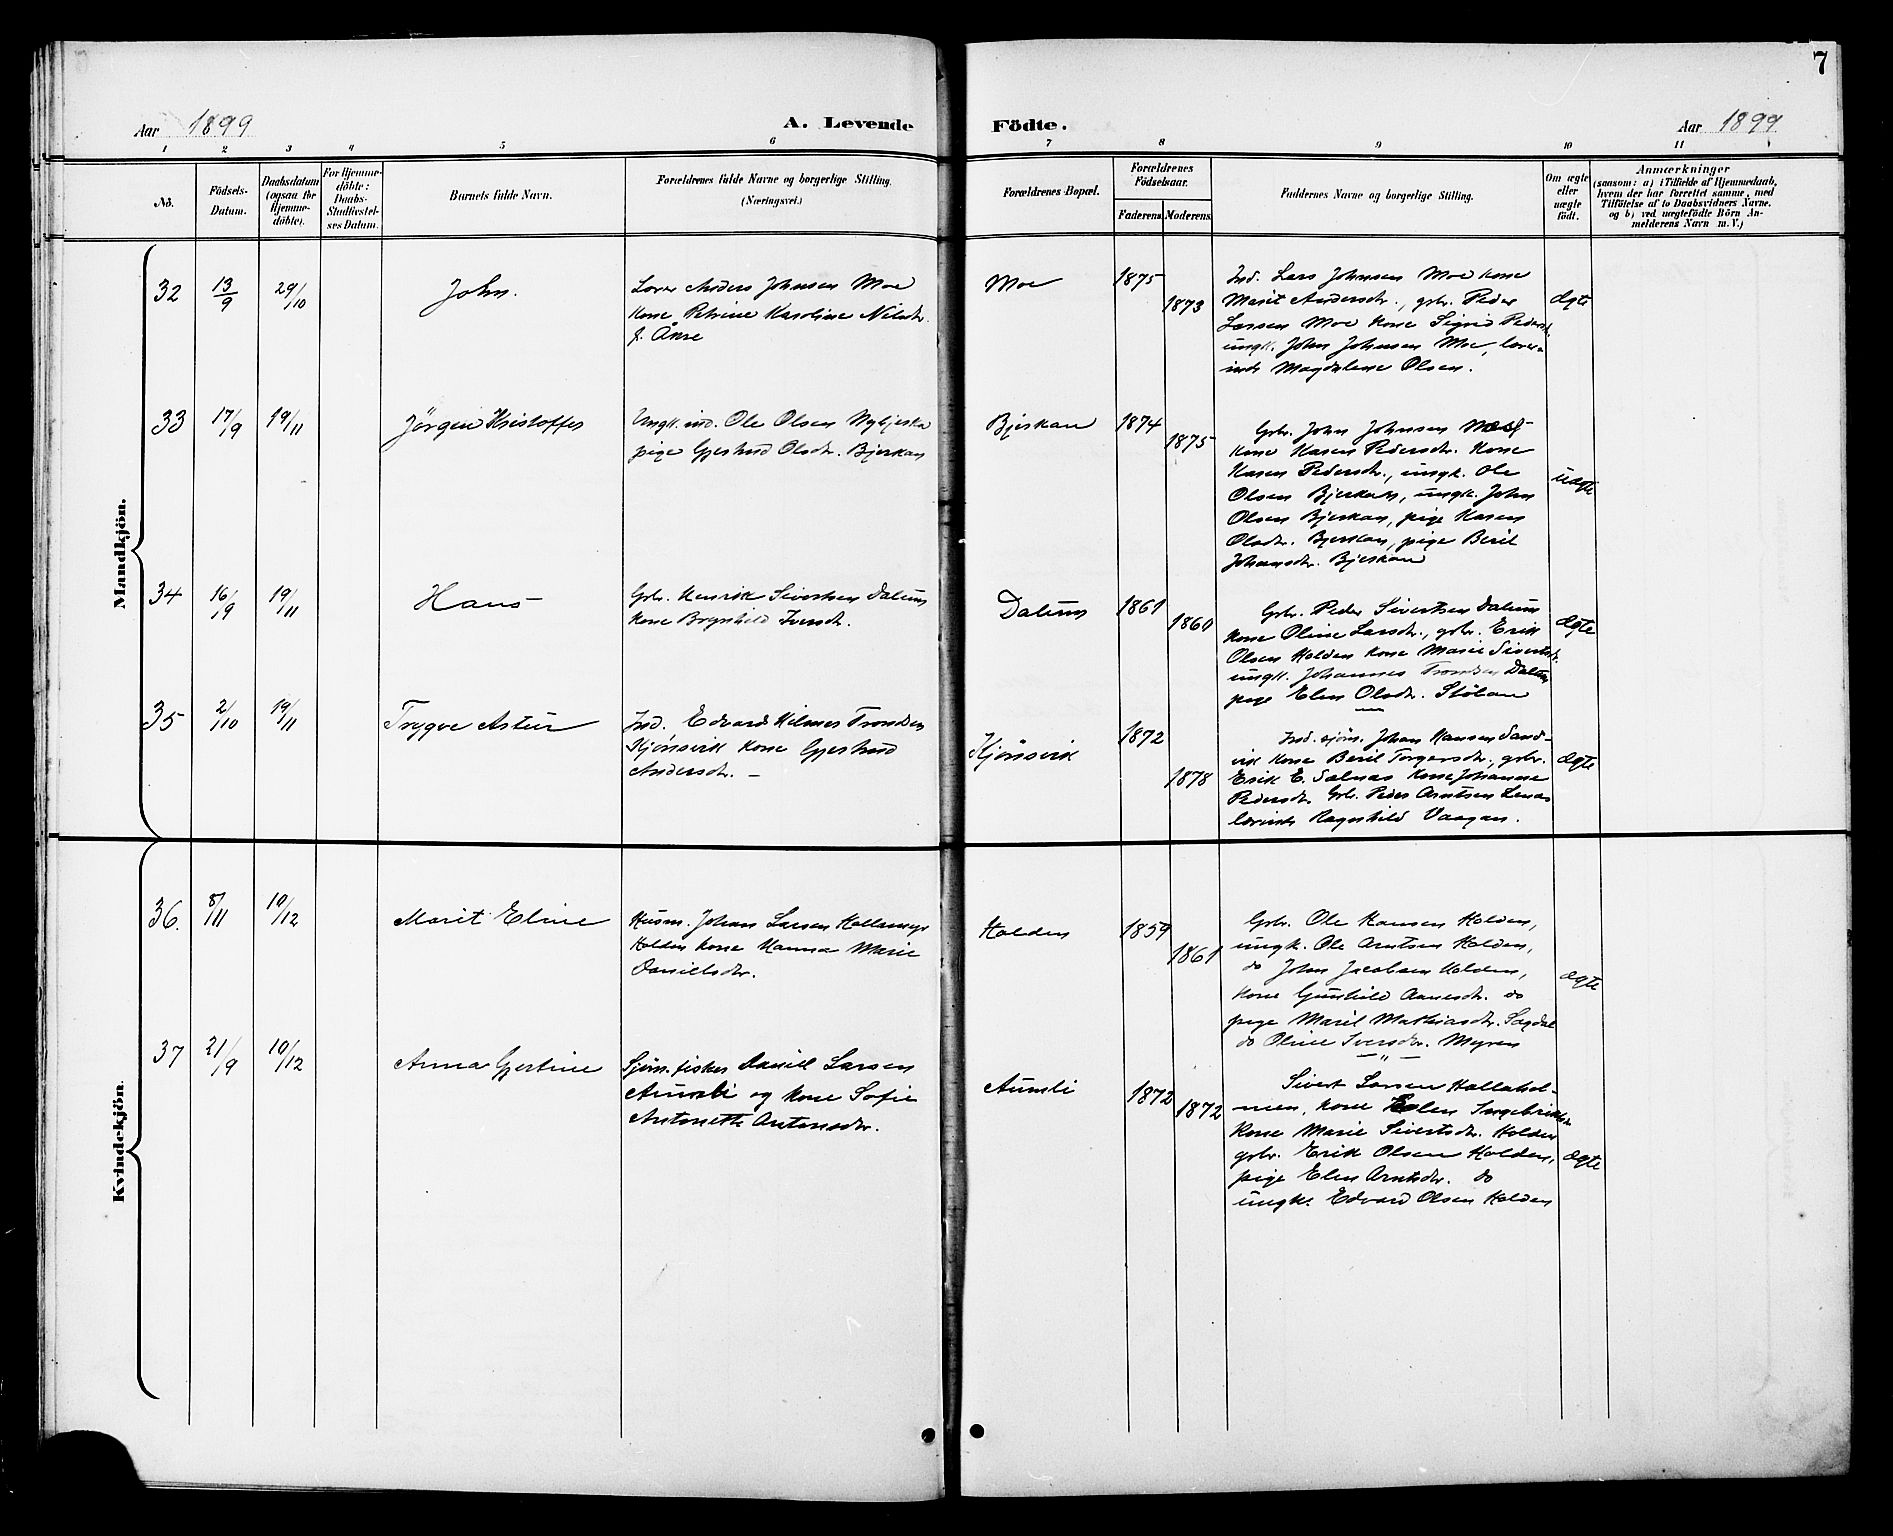 7
Aar 1899
A. Levende Födte.
Aar 1899
1 2 3 4 5 6 7 8 9 10 11
No.
Födsels-
Datum.
Daabsdatum
(ogsaa for
Hjemme-
döbte).
For Hjemme-
döbte:
Daabs-
Stadfæstel-
ses Datum.
Barnets fulde Navn.
Forældrenes fulde Navne og borgerlige Stilling.
(Næringsvei.)
Forældrenes Bopæl.
Forældrenes
Födselsaar.
Faderens.
Moderens.
Faddernes Navne og borgerlige Stilling.
Om ægte
eller
uægte
født.
Anmærkninger
(saasom: a) i Tilfælde af Hjemmedaab,
hvem der har forrettet samme, med
Tilföielse af to Daabsvidners Navne.
og b) ved uægtefödte Börn An-
melderens Navn m. V.)
Mandkjön.
32
13/9
29/10
John.
Lærer Anders Johnsen Moe
Kone Petrine Karoline Nilsdr.
f. Åkre
Moe
1875
1873
Ind. Lars Johnsen Moe Kone
Marit Andersdr., gbr. Peder
Larsen Moe Kone Sigrid Pedersd.
ungk. John Johnsen Moe, lærer-
inde Magdalene Olsen.
ægte
33
17/9
19/11
Jörgen Kristoffer
Ungk. ind. Ole Olsen
pige Gjertrud Olsdr. Bjerkan
Bjerkan
1874
1875
Gbr. John Johnsen
Kone Karen Pedersdr. Kone
Karen Pedersdr., ungk. Ole
Olsen Bjerkan, ungk. John
Olsen Bjerkan, pige Karen
Olsdr. Bjerkan, pige Berit
Johansdr. Bjerkan
uægte
34
16/9
19/11
Hans
Gbr. Henrik Sivertsen Dalum
Kone Brynhild Iversdr.
Dalum
1861
1860
Gbr. Peder Sivertsen Dalum
Kone Oline Larsdr., gbr. Erik
Olsen Holden Kone Marie Sivertsdr.
ungk. Johannes Trondsen Dalum
pige Elen Olsdr. Stölan
ægte
35
2/10
19/11
Trygve Astur
Ind. Edvard Hilmer Trondsen
Kjönsvik Kone Gjertrud
Andersdr. –
Kjönsvik
1872
1878
Ind. sjöm. Johan Hansen Sand-
vik Kone Berit Torgersdr., gbr.
Erik E. Salnæs Kone Johanne
Pedersdr. Gbr. Peder Arntsen Lenæs
lærinde Ragnhild Vaagan.
ægte
Kvindekjön.
36.
8/11
10/12
Marit Eline
Husm. Johan Larsen
Holden Kone Hanna Marie
Danielsdr.
Holden
1859
1861
Gbr. Ole Hansen Holden,
ungk. Ole Arntsen Holden,
do John Jacobsen Holden,
Kone Gunhild Aanesdr. do
pige Marit Mathiasdr. Sagdal
do Oline Iversdr. Myren
ægte
37
21/9
10/12
Anna Gjertine
Sjöm. fisker Daniel Larsen
Aunli og Kone Sofie
Antonette Antonsdr.
Aunli
1872
1872
Sivert Larsen Hallahol-
men, Kone Elen Ingebrigtsdr.
Kone Marie Sivertsdr. Holden
gbr. Erik Olsen Holden,
pige Elen Arntsdr. do
ungk. Edvard Olsen Holden
ægte